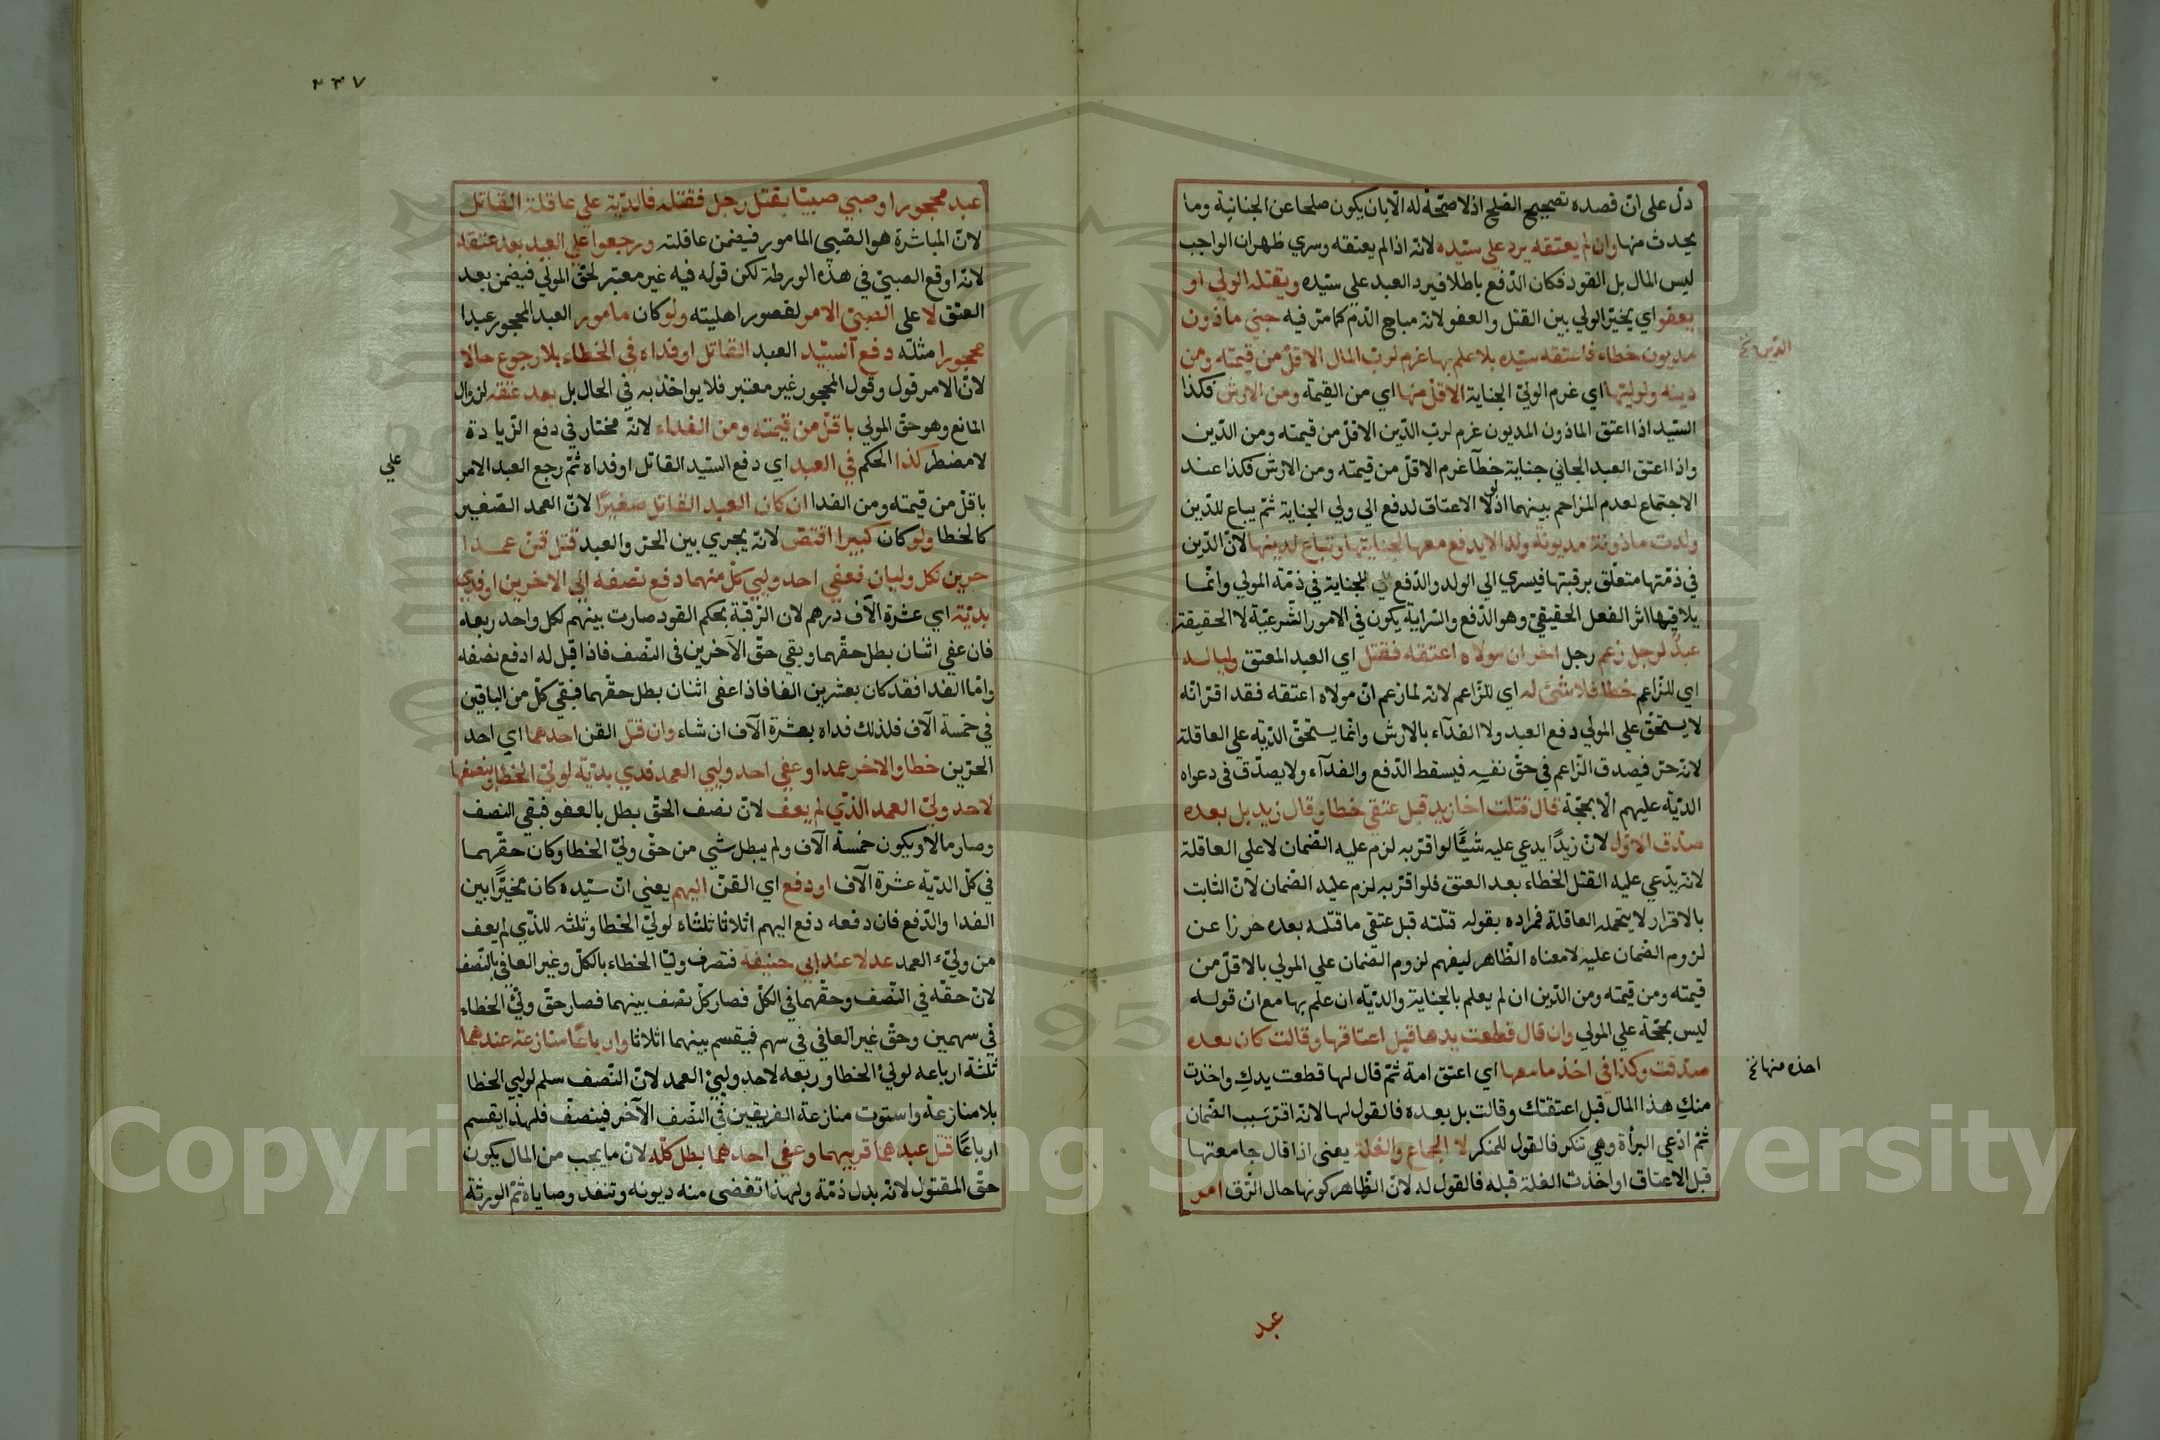 دلّ على انّ قصده تصحيح الصّلح اذ لا صحّة له الّا بان يكون صلحا عن الجناية وما
يحدث منها وان لم يعتقه يردّ على سيّده لانّه اذا لم يعتقه وسري ظهر ان الواجب
ليس المال بل القود فكان الدّفع باطلا فيرد العبد علي سيّده ويقتله الولي او
يعفو اي يخيّر الولي بين القتل والعفو لانّه مباح الدّم كما مرّ فيه جني ماذون
مديون خطاء فاعتقه سيّده بلا علم بها غرم لربّ المال الاقلّ من قيمته ومن
الدّين نخ
دينه ولوليّها اي غرم الوليّ الجناية الاقلّ منها اي من القيمة ومن الارش فكذا
السيّد اذا اعتق الماذون المديون غرم لربّ الدّين الاقلّ من قيمته ومن الدّين
واذا اعتق العبد الجاني جناية خطأ غرم الاقلّ من قيمته ومن الارش فكذا عند
الاجتماع لعدم المزاحم بينهما اذ لولا الاعتاق لدفع الي ولي الجناية ثمّ يباع للدّين
ولدت ماذونة مديونة ولدا لا يدفع معها لجنايتها وتباع لدينها لانّ الدّين
في ذمّتها متعلّق برقبتها فيسري الي الولد والدّفع للجناية في ذمّة المولي وانّما
يلاقيها اثر الفعل الحقيقيّ وهو الدّفع والسّراية يكون في الامور الشّرعيّة لا الحقيقيّة
عبدٌ لرجل زعم رجل اخر ان مولاه اعتقه فقتل اي العبد المعتق وليا له
اي للزّاعم خطا فلا شئ له اي للزّاعم لانّه لما زعم انّ مولاه اعتقه فقد اقرّ انّه
لا يستحقّ علي المولي دفع العبد ولا الفدآء بالارش وانّما يستحقّ الدّية علي العاقلة
لانّه حرّ فيصدق الزّاعم في حقّ نفسه فيسقط الدّفع والفدآء ولا يصدّق في دعواه
الديّة عليهم الّا بحجّة قال قتلت اخا زيد قبل عتقي خطا وقال زيد بل بعده
صدّق الاوّل لانّ زيدًا يدعي عليه شيئًا لو اقرّ به لزم عليه الضّمان لا علي العاقلة
لانّه يدّعي عليه القتل الخطاء بعد العتق فلو اقرّ به لزم عليه الضّمان لانّ الثابت
بالاقرار لا يتحمله العاقلة فمراده بقوله قتلته قبل عتقي ما قتلته بعده حرزا عن
لزوم الضّمان عليه لا معناه الظّاهر ليفهم لزوم الضمان علي المولي بالاقلّ من
قيمته ومن قيمته ومن الدّين ان لم يعلم بالجناية والديّة ان علم بها مع انّ قوله
ليس بحجّة علي المولي وان قال قطعت يدها قبل اعتاقها وقالت كان بعده
صدّقت وكذا في اخذ ما معها اي اعتق امة ثمّ قال لها قطعت يدكِ واخذت
احذه منها نخ
منكِ هذا المال قبل اعتقتك وقالت بل بعده فالقول لها لانّه اقرّ بسبب الضّمان
ثمّ ادّعي البرأة وهي تنكر فالقول للمنكر لا الجماع والغلة يعني اذا قال جامعتها
قبل الاعتاق او اخذت الغلة قبله فالقول له لانّ الظّاهر كونها حال الرّق امر
عبد
٢٣٧
عبد محجورا او صبي صبيّا بقتل رجل فقتله فالديّة علي عاقلة القاتل
لانّ المباشرة هو الصّبي المامور فيضمن عاقلته ورجعوا علي العبد بعد عتقه
لانّه اوقع الصبيّ في هذه الورطة لكن قوله فيه غير معتبر لحقّ المولي فيضمن بعد
العتق لا علي الصّبيّ الامر لقصور اهليته ولو كان مامور العبد المحجور عبدا
محجورا مثلّه دفع السّيّد العبد القاتل او فداه في الخطاء بلا رجوع حالا
لانّ الامر قول وقول المحجور غير معتبر فلا يواخذ به في الحال بل بعد عتقه لزوال
المانع وهو حقّ المولي باقلّ من قيمته ومن الفداء لانّه مختار في دفع الزّيادة
لا مضطر كذا الحكم في العبد اي دفع السيّد القاتل او فداه ثمّ رجع العبد الامر
علي
باقلّ من قيمته ومن الفدا ان كان العبد القاتل صغيرًا لانّ العمد الصّغير
كالخطا ولو كان كبيرا اقتصّ لانّه يجري بين الحرّ والعبد قتل قنّ عمدا
حرين لكل وليان فعفي احد وليي كلّ منهما دفع نصفه الي الاخرين او فدي
بديّة اي عشرة الآف درهم لان الرّقبة بحكم القود صارت بينهم لكل واحد ربعه
فان عفي اثنان بطل حقّهما وبقي حقّ الآخرين في النّصف فاذا قيل له ادفع نصفه
وامّا الفدا فقد كان بعشرين الفا فاذا عفي اثنان بطل حقّهما فبقي كلّ من الباقين
في خمسة الآف فلذلك فداه بعشرة الآف ان شاء وان قتل القن احدهما اي احد
الحرّين خطا والاخر عمدا وعفي احد وليي العمد فدي بديّة لوليّ الخطا وبنصفها
لاحد وليّ العمد الذّي لم يعف لانّ نصف الحقّ بطل بالعفو فبقي النصف
وصار مالا ويكون خمسة الآف ولم يبطل شي من حقّ وليّ الخطا وكان حقّهما
في كلّ الديّة عشرة الآف او دفع اي القنّ اليهم يعني انّ سيّده كان مخيّرًا بين
الفدا والدّفع فان دفعه دفع اليهم اثلاثا ثلثاه لوليّ الخطا وثلثه للذّي لم يعف
من وليّ العمد عدلا عند ابي حنيفة فتصرف وليّا الخطاء بالكلّ وغير العافي بالنّصف
لانّ حقّه في النّصف وحقّهما في الكلّ فصار كلّ نصف بينهما فصار حقّ وليّ الخطاء
في سهمين وحقّ غير العافي في سهم فيقسم بينهما اثلاثا وارباعًا منازعة عندهما
ثلثة ارباعه لوليّ الخطا وربعه لاحد وليي العمد لانّ النّصف سلم لوليي الخطا
بلا منازعة واستوت منازعة الفريقين في النّصف الآخر فينصف فلهذا يقسم
ارباعًا قتل عبدهما قريبهما وعفي احدهما بطل كلّه لانّ ما يجب من المال يكون
حقّ المقتول لانّه بدل ذمّة ولهذا تقضى منه ديونه وتنفذ وصاياه ثمّ الورثة
Copyright © King Saud University